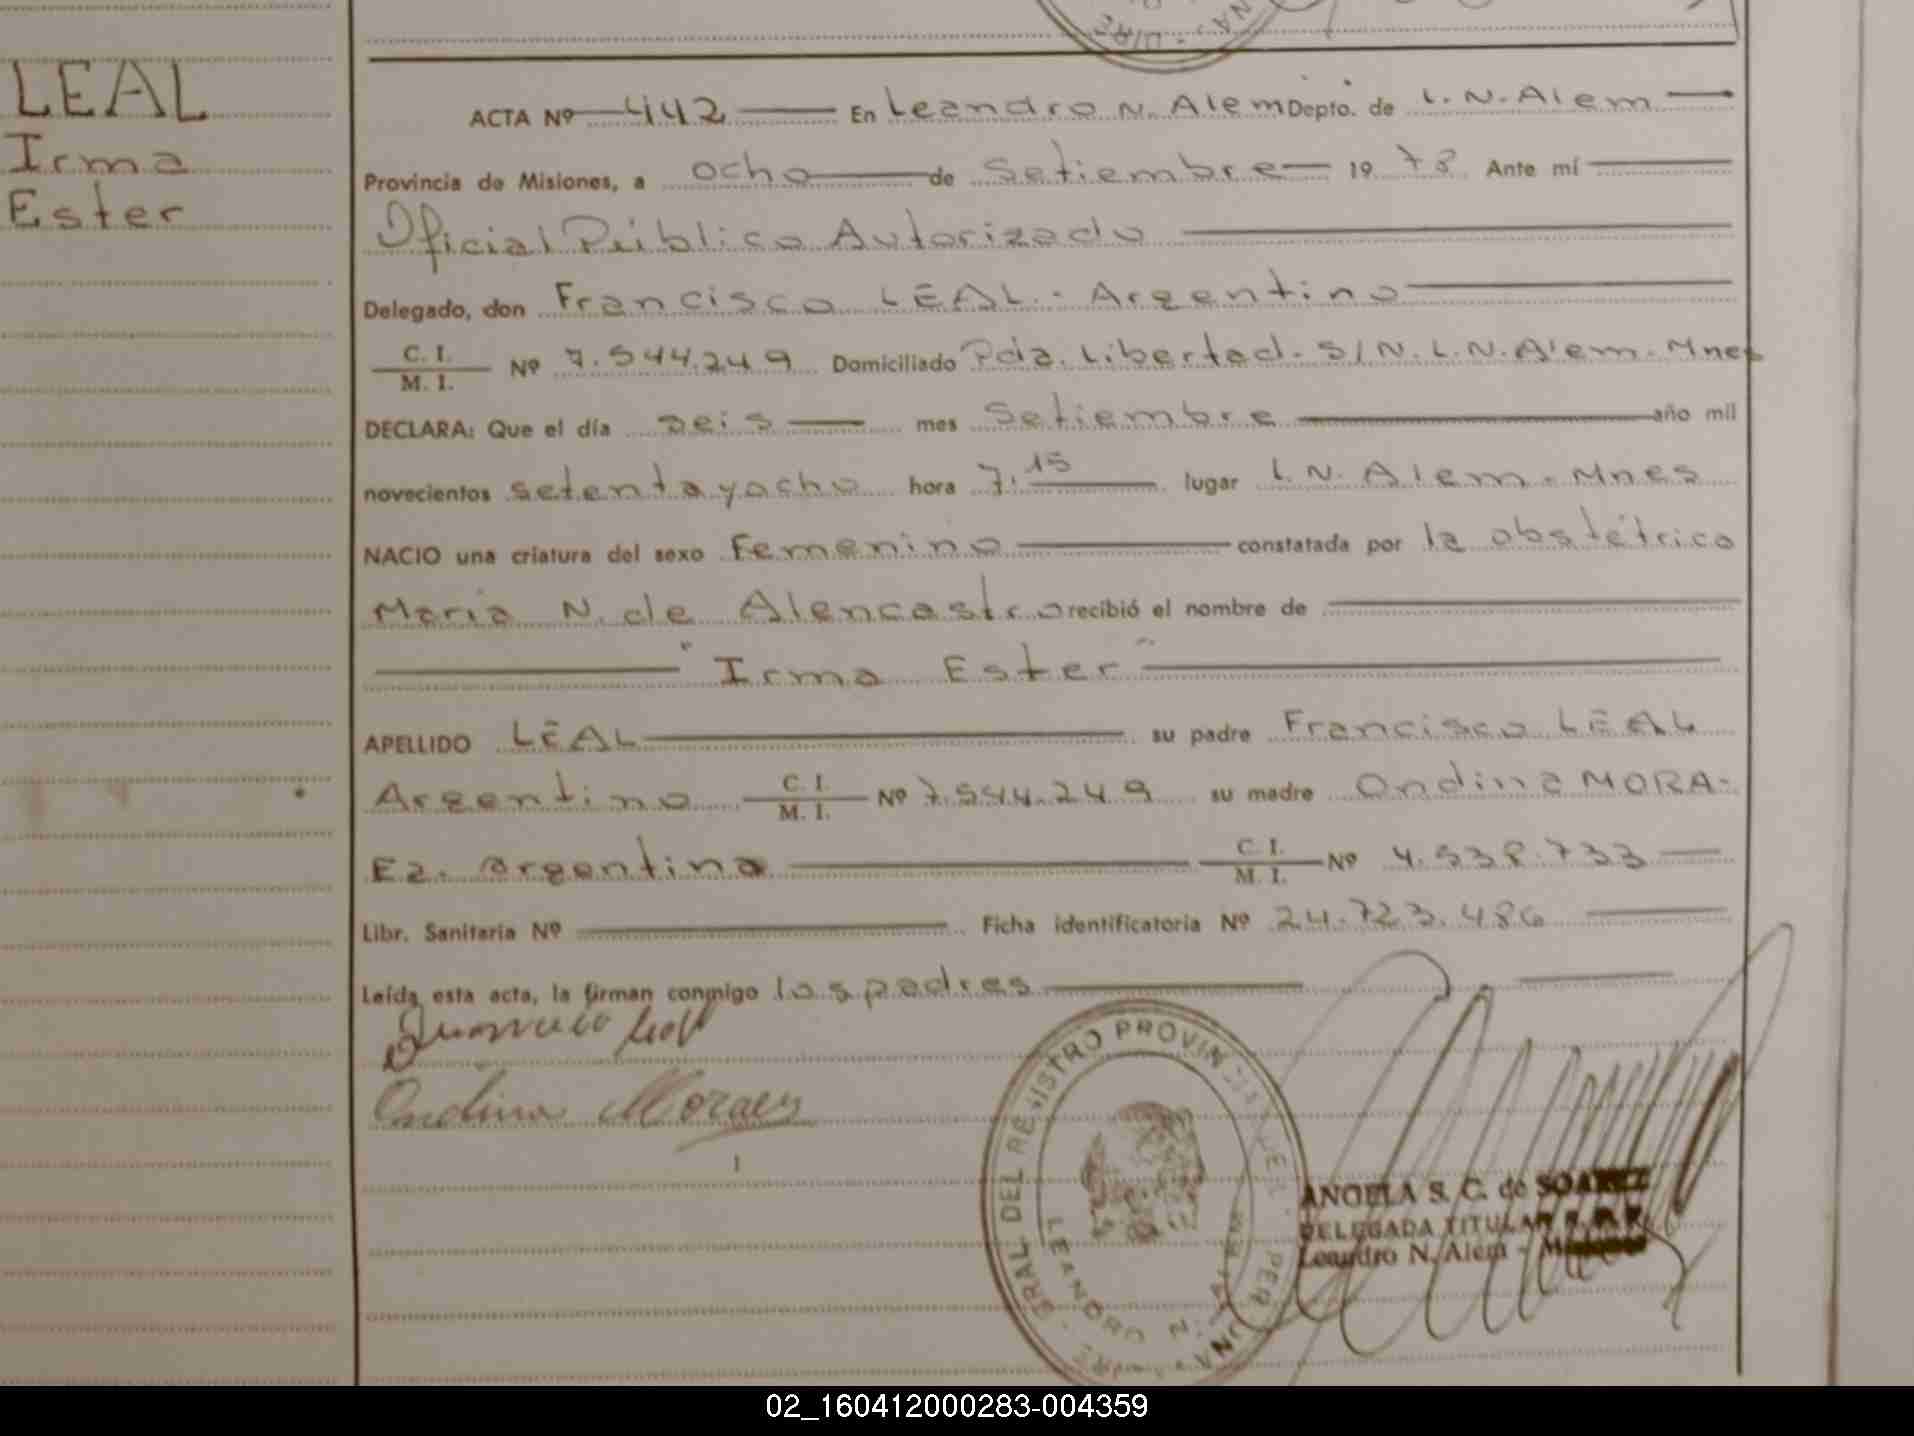 LEAL
Irma
Ester
ACTA Nº 442 En Leandro N. Alem Depto. de L. N. Alem
Provincia de Misiones, a ocho de Setiembre 19 78 Ante mí
Oficial Público Autorizado
Delegado, don Francisco LEAL.- Argentino
C. I.
M. I. Nº 7.544.249 Domiciliado Pda. Libertad. S/N. L.N. Alem. Mnes
DECLARA: Que el día seis mes Setiembre año mil
novecientos setenta y ocho hora 7.15 lugar L. N. Alem. Mnes
NACIO una criatura del sexo Femenino constatada por la obstétrica
Maria N. de Alencastro recibió el nombre de
" Irma Ester "
APELLIDO LEAL su padre Francisco LEAL
Argentino C. I.
M. I. Nº 7.544.249 su madre Ondina MORA-
Ez. Argentina C. I.
M. I. Nº 4.538.733
Libr. Sanitaria Nº Ficha identificatoria Nº 24.723.486
Leída esta acta, la firman conmigo los padres
Ondina Moraes
GRAL. DEL REGISTRO PROVIN
LEANDRO N. ALEM
ANGELA S. C. de SOAREZ
DELEGADA TITULAR
Leandro N. Alem - Misiones
02_160412000283-004359